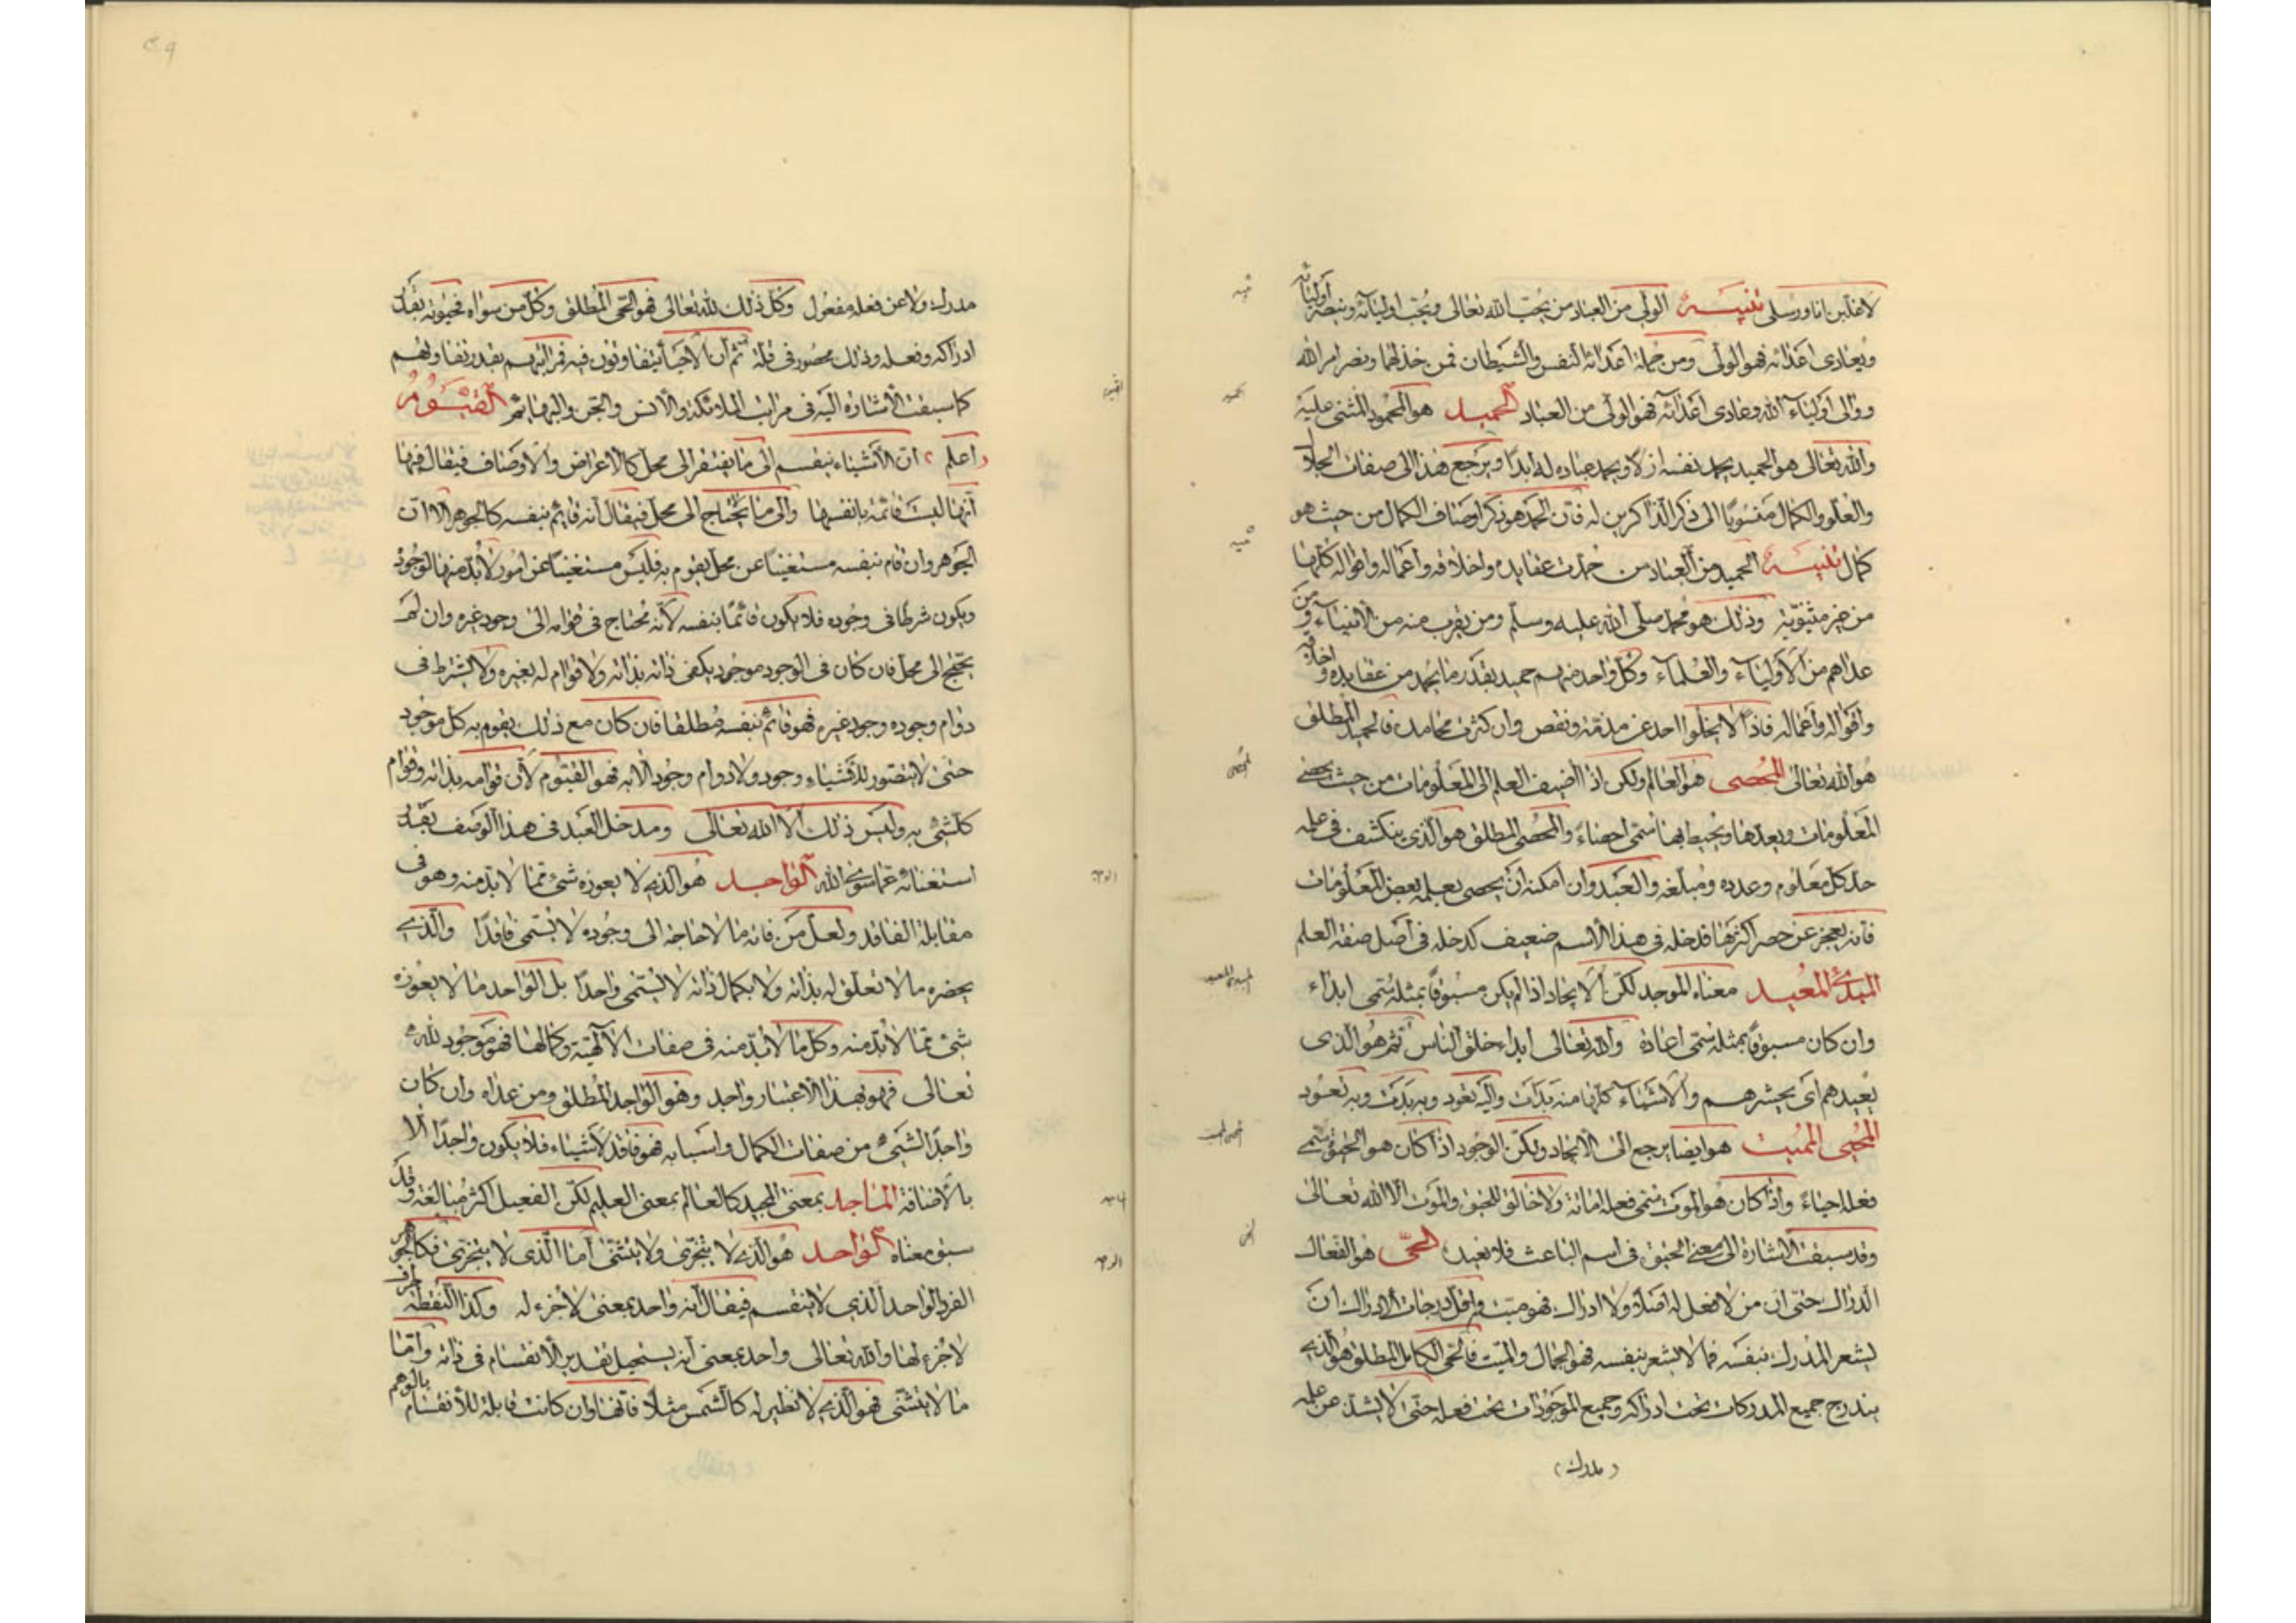 لاغلبن انا ورسلى تنبيه الولى من العباد من يحب الله تعالى ويحب اولياءه وينصر اولياءه
ويعادى اعداءه فهو الولى ومن جملة اعدائه النفس والشيطان فمن خذلهما ونصر امر الله
ووالى اولياء الله وعادى اعدائه فهو الولى من العباد الحميد هو المحمود المثنى عليه
والله تعالى هو الحميد بحمد نفسه ازلا وبحمد عباده له ابدا ويرجع هذا الى صفات الجلال
والعلو والكمال منسوبا الى ذكر الذاكرين له فان الحمد هو ذكر اوصاف الكمال من حيث هو
كمال تنبيه الحميد من العباد من حمدت عقايده واخلاقه واعماله واقواله كلها
من غير مثنوية وذلك هو محمد صلى الله عليه وسلم ومن يقرب منه من الانبياء ومن
عداهم من الاولياء والعلماء وكل واحد منهم حميد بقدر ما يحمد من عقايده واخلاقه
واقواله واعماله فاذا لا يخلوا احد عن مذمة ونقص وان كثرت محامده فالحميد المطلق
هو الله تعالى المحصى هو العالم ولكن اذا اضيف العلم الى المعلومات من حيث يحصى
المعلومات ويعدها ويحيط بها سمى احصاء والمحصى المطلق هو الذى ينكشف فى علمه
حد كل معلوم وعدده ومبلغه والعبد وان امكنه ان يحصى بعلمه بعض المعلومات
فانه يعجز عن حصر اكثرها فدخله فى هذا الاسم ضعيف كدخله فى اصل صفة العلم
المبدئ المعيد معناه الموجد لكن الايجاد اذا لم يكن مسبوقا بمثله سمى ابداء
وان كان مسبوقا بمثله سمى اعادة والله تعالى ابداء خلق الناس ثم هو الذى
يعيدهم اى يحشرهم والاشياء كلها منه بدات واليه تعود وبه بدت وبه تعود
المحيى المميت هو ايضا يرجع الى الايجاد ولكن الوجود اذا كان هو الحيوة سمى
فعله احياء واذا كان هو الموت سمى فعله اماتة ولا خالق للحيوة والموت الا الله تعالى
وقد سبقت الاشارة الى معنى الحيوة فى اسم الباعث فلا نعيده الحى هو الفعال
الدراك حتى ان من لا فعل له اصلا ولا ادراك فهو ميت واقل درجات الادراك ان
يشعر المدرك بنفسه فما لا يشعر بنفسه فهو الجماد والميت فالحى الكامل المطلق هو الذى
يندرج جميع المدركات تحت ادراكه وجميع الموجودات تحت فعله حتى لا يشذ عن علمه
مدرك
مدرك ولا عن فعله مفعول وكل ذلك لله تعالى فهو الحى المطلق وكل من سواه فحيوته بقدر
ادراكه وفعله وذلك محصور فى قلة ثم ان الاحياء يتفاوتون فيه فمراتبهم بقدر تفاوتهم
كما سبقت الاشارة اليه فى مراتب الملائكة والانس والجن والبهائم القيوم
اعلم ان الاشياء ينقسم الى ما يفتقر الى محل كالاعراض والاوصاف فيقال فيها
انها ليست قائمة بانفسها والى ما لا يحتاج الى محل فيقال انه قائم بنفسه كالجوهر الا ان
الجوهر وان قام بنفسه مستغنيا عن محل يقوم به فليس مستغنيا عن امور لا بد منها لوجوده
ويكون شرطا فى وجوده فلا يكون قائما بنفسه لانه محتاج فى قوامه الى وجود غيره وان لم
يحتج الى محل فان كان فى الوجود موجود يكفى ذاته بذاته ولا قوام له بغيره ولا يشترط فى
دوام وجوده وجود غيره فهو قائم بنفسه مطلقا فان كان مع ذلك يقوم به كل موجود
حتى لا يتصور للاشياء وجود ولا دوام وجود الا به فهو القيوم لان قوامه بذاته وقوام
كل شئ به وليس ذلك الا الله تعالى ومدخل العبد فى هذا الوصف بقدر
استغنائه عما سوى الله الواجد هو الذى لا يعوزه شئ مما لا بد منه وهو فى
مقابلة الفاقد ولعل من فاته ما لا حاجة الى وجوده لا يسمى فاقدا والذى
يحضره ما لا تعلق له بذاته ولا بكمال ذاته لا يسمى واجدا بل الواجد ما لا يعوزه
شئ مما لا بد منه وكل ما لا بد منه فى صفات الالهية وكمالها فهو موجود لله
تعالى فهو بهذا الاعتبار واجد وهو الواجد المطلق ومن عداه وان كان
واجدا لشئ من صفات الكمال واسبابه فهو فاقد لاشياء فلا يكون واجدا الا
بالاضافة الماجد بمعنى المجيد كالعالم بمعنى العليم لكن الفعيل اكثر مبالغة وقد
سبق معناه الواحد هو الذى لا يتجزى ولا يتثنى اما الذى لا يتجزى فكالجوهر
الفرد الواحد الذى لا ينقسم فيقال انه واحد بمعنى لا جزء له وكذا النقطة
لا جزء لها والله تعالى واحد بمعنى انه يستحيل تقدير الانقسام فى ذاته واما
ما لا يتثنى فهو الذى لا نظير له كالشمس مثلا فانها وان كانت قابلة للانقسام بالوهم